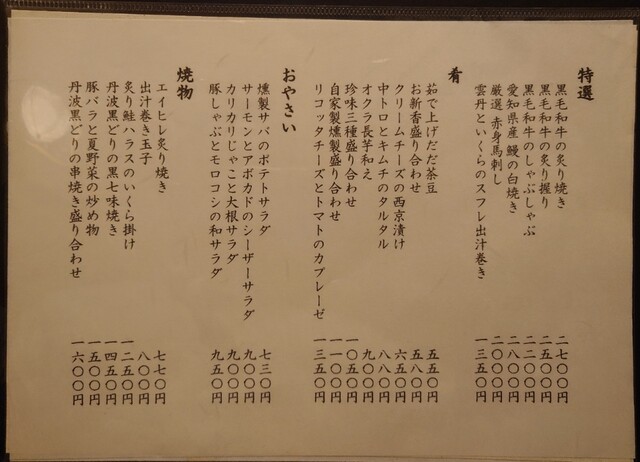 特選
黒毛和牛の炙り焼き 二七〇〇円
黒毛和牛の炙り握り 二五〇〇円
黒毛和牛のしゃぶしゃぶ 二二〇〇円
愛知県産 鰻の白焼き 二八〇〇円
厳選 赤身馬刺し 二〇〇〇円
雲丹といくらのスフレ出汁巻き 一三五〇円
肴
茹で上げだだ茶豆 五五〇円
お新香盛り合わせ 五八〇円
クリームチーズの西京漬け 六五〇円
中トロとキムチのタルタル 八八〇円
オクラ長芋和え 九〇〇円
珍味三種盛り合わせ 一〇五〇円
自家製燻製盛り合わせ 一一〇〇円
リコッタチーズとトマトのカプレーゼ 一三五〇円
おやさい
燻製サバのポテトサラダ 七三〇円
サーモンとアボカドのシーザーサラダ 九〇〇円
カリカリじゃこと大根サラダ 九〇〇円
豚しゃぶとモロコシの和サラダ 九五〇円
焼物
エイヒレ炙り焼き 七七〇円
出汁巻き玉子 八〇〇円
炙り鮭ハラスのいくら掛け 一二五〇円
丹波黒どりの黒七味焼き 一四五〇円
豚バラと夏野菜の炒め物 一五〇〇円
丹波黒どりの串焼き盛り合わせ 一六〇〇円